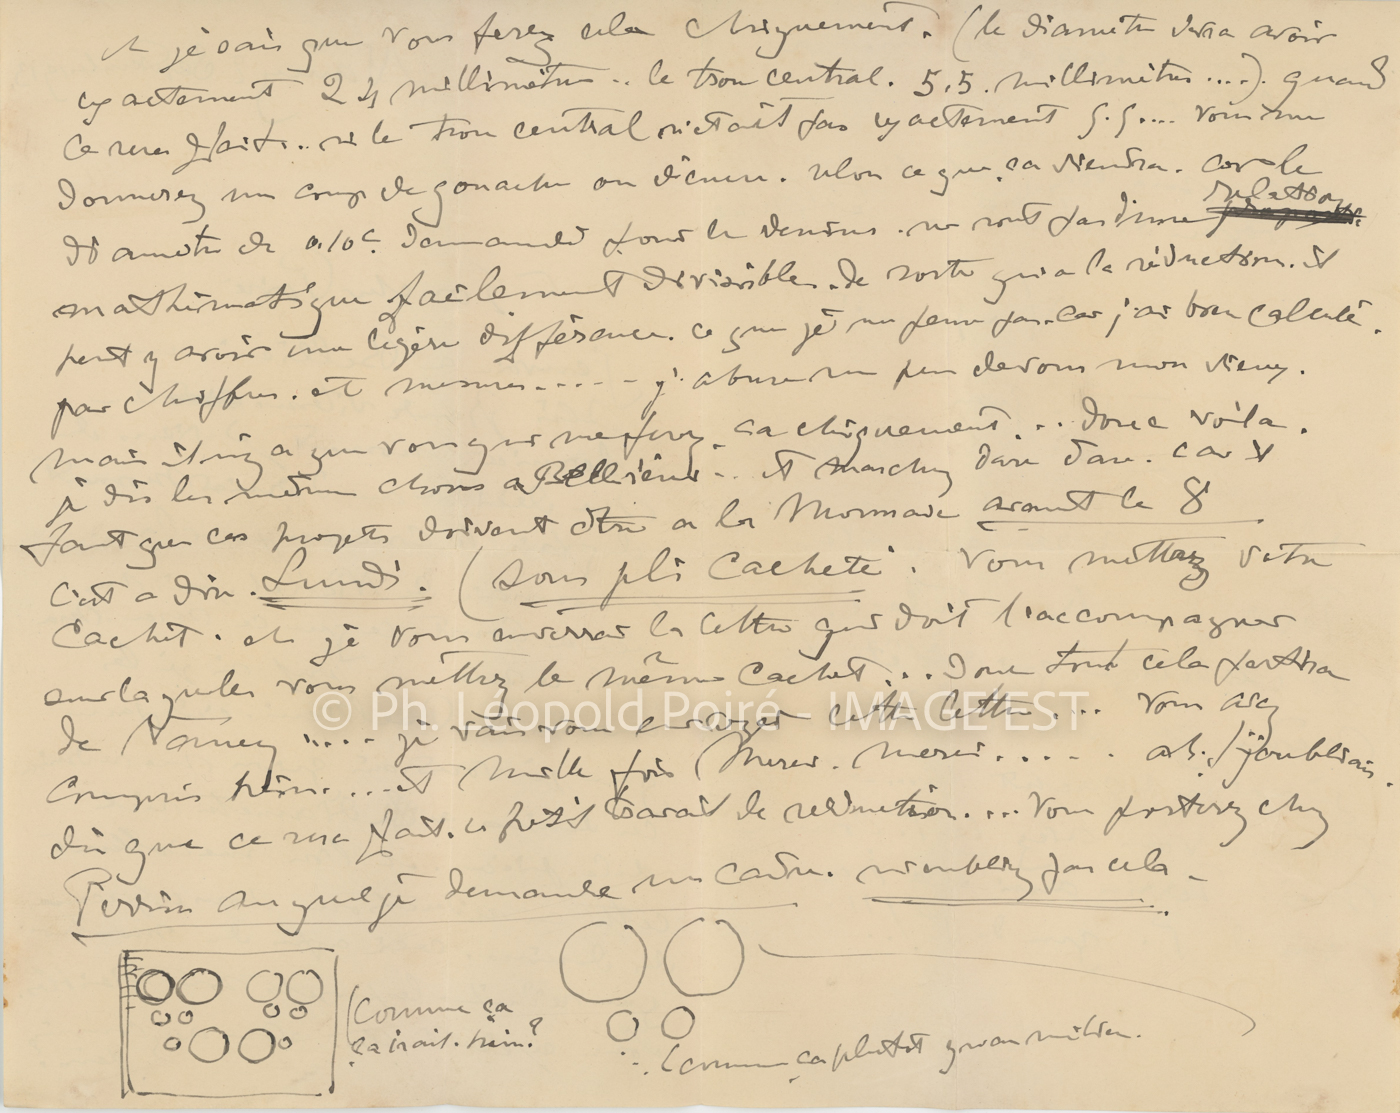 et je sais que vous ferez cela chiquement. (le diamètre devra avoir
exactement 24 millimètres .. le trou central. 5,5. millimètres ....). quand
ce sera fait .. si le trou central n'était pas exactement 5.5.... vous me
donnerez un coup de gouache ou d'encre. selon ce que ça viendra. car le
diamètre de 0.10c. demandé pour le dessins. ne sont pas d'une relation
mathématique facilement divisible. de sorte qu'a la réduction. il
peut y avoir une légère différence. ce que je ne pense pas. car j'ai bien calculé.
par chiffres. et mesures..... - j'abuse un peu de vous mon vieux.
mais il n'y a que vous qui me ferez. ça chiquement ... donc voila.
je dis les mêmes choses a Bellieni .. et marchez dare dare. car il
faut que ces projets doivent être a la Monnaie avant le 8
c'est a dire. Lundi. (sous pli cacheté. Vous mettrez votre
Cachet. et je vous enverrai la lettre qui doit l'accompagner
sur laquelle vous mettrez le même Cachet ... Donc tout cela partira
de Nancy ..... je vais vous envoyer cette lettre .... Vous avez
compris hein. ... et mille fois Merci. merci..... ah! j'oubliais.
dès que ce sera fait. ce petit travail de réduction.... Vous porterez chez
auquel je demande un cadre. n'oubliez pas cela -
(Comme ça
ça irait. hein?
(comme ça plutôt qu'au milieu.
© Ph. Léopold Poiré - IMAGE'EST